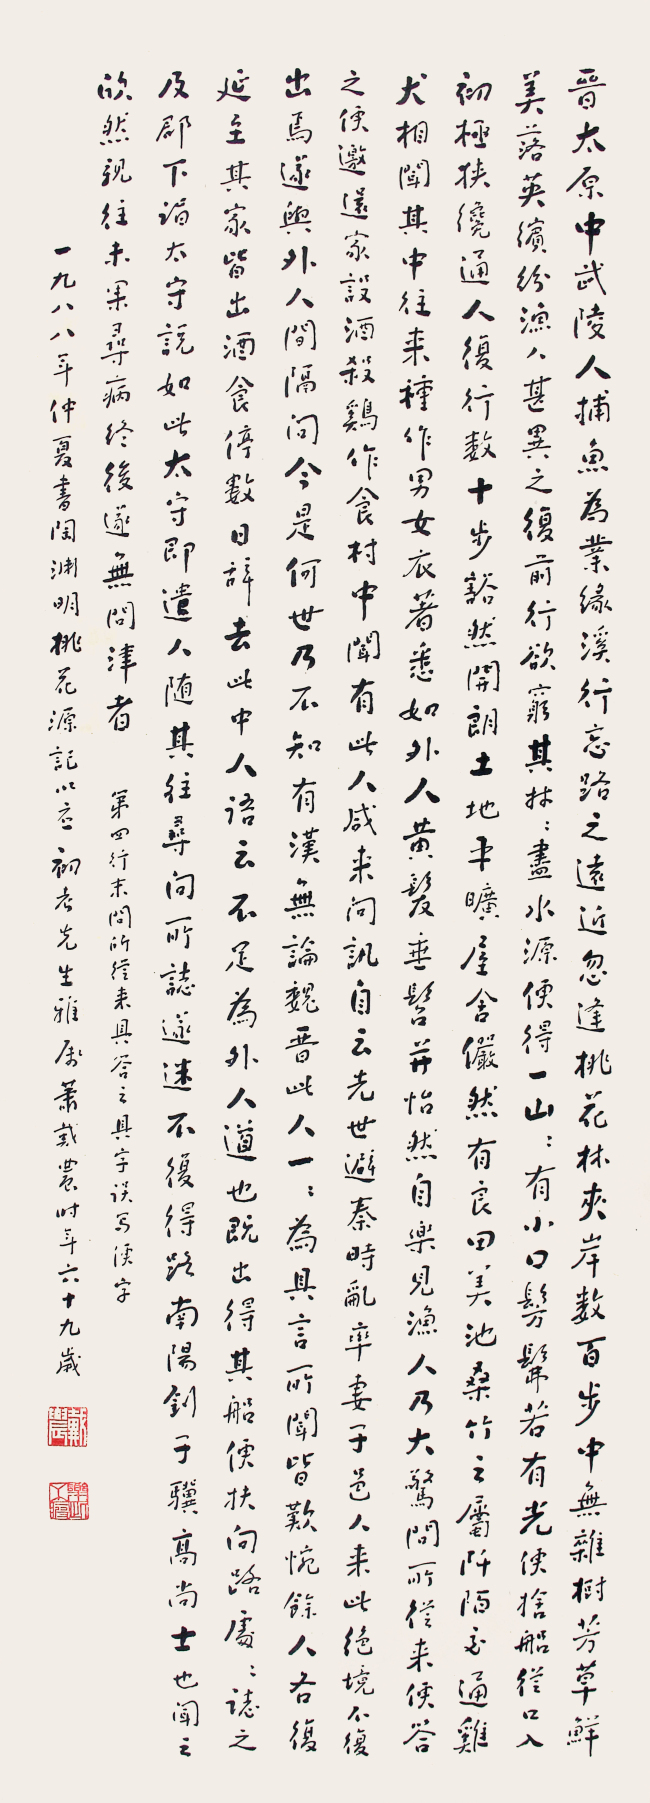 晉太原中武陵人捕魚為業緣溪行忘路之遠近忽逢桃花林夾岸數百步中無雜樹芳草鮮
美落英繽紛漁人甚異之復前行欲窮其林〻盡水源便得一山〻有小口髣髴若有光便捨船從口入
初極狹纔通人復行數十步豁然開朗土地平曠屋舍儼然有良田美池桑竹之屬阡陌交通雞
犬相聞其中往來種作男女衣著悉如外人黃髮垂髫並怡然自樂見漁人乃大驚問所從來便答
之便邀還家設酒殺雞作食村中聞有此人咸來問訊自云先世避秦時亂率妻子邑人來此絕境不復
出焉遂與外人間隔問今是何世乃不知有漢無論魏晉此人一〻為具言所聞皆歎惋餘人各復
延至其家皆出酒食停數日辭去此中人語云不足為外人道也既出得其船便扶向路處〻誌之
及郡下詣太守說如此太守即遣人隨其往尋向所誌遂迷不復得路南陽劉子驥高尚士也聞之
欣然親往未果尋病終後遂無問津者 第四行末問所從來具答之具字誤寫便字
一九八八年仲夏書陶淵明桃花源記以應初老先生雅屬蕭戴農時年六十九歲